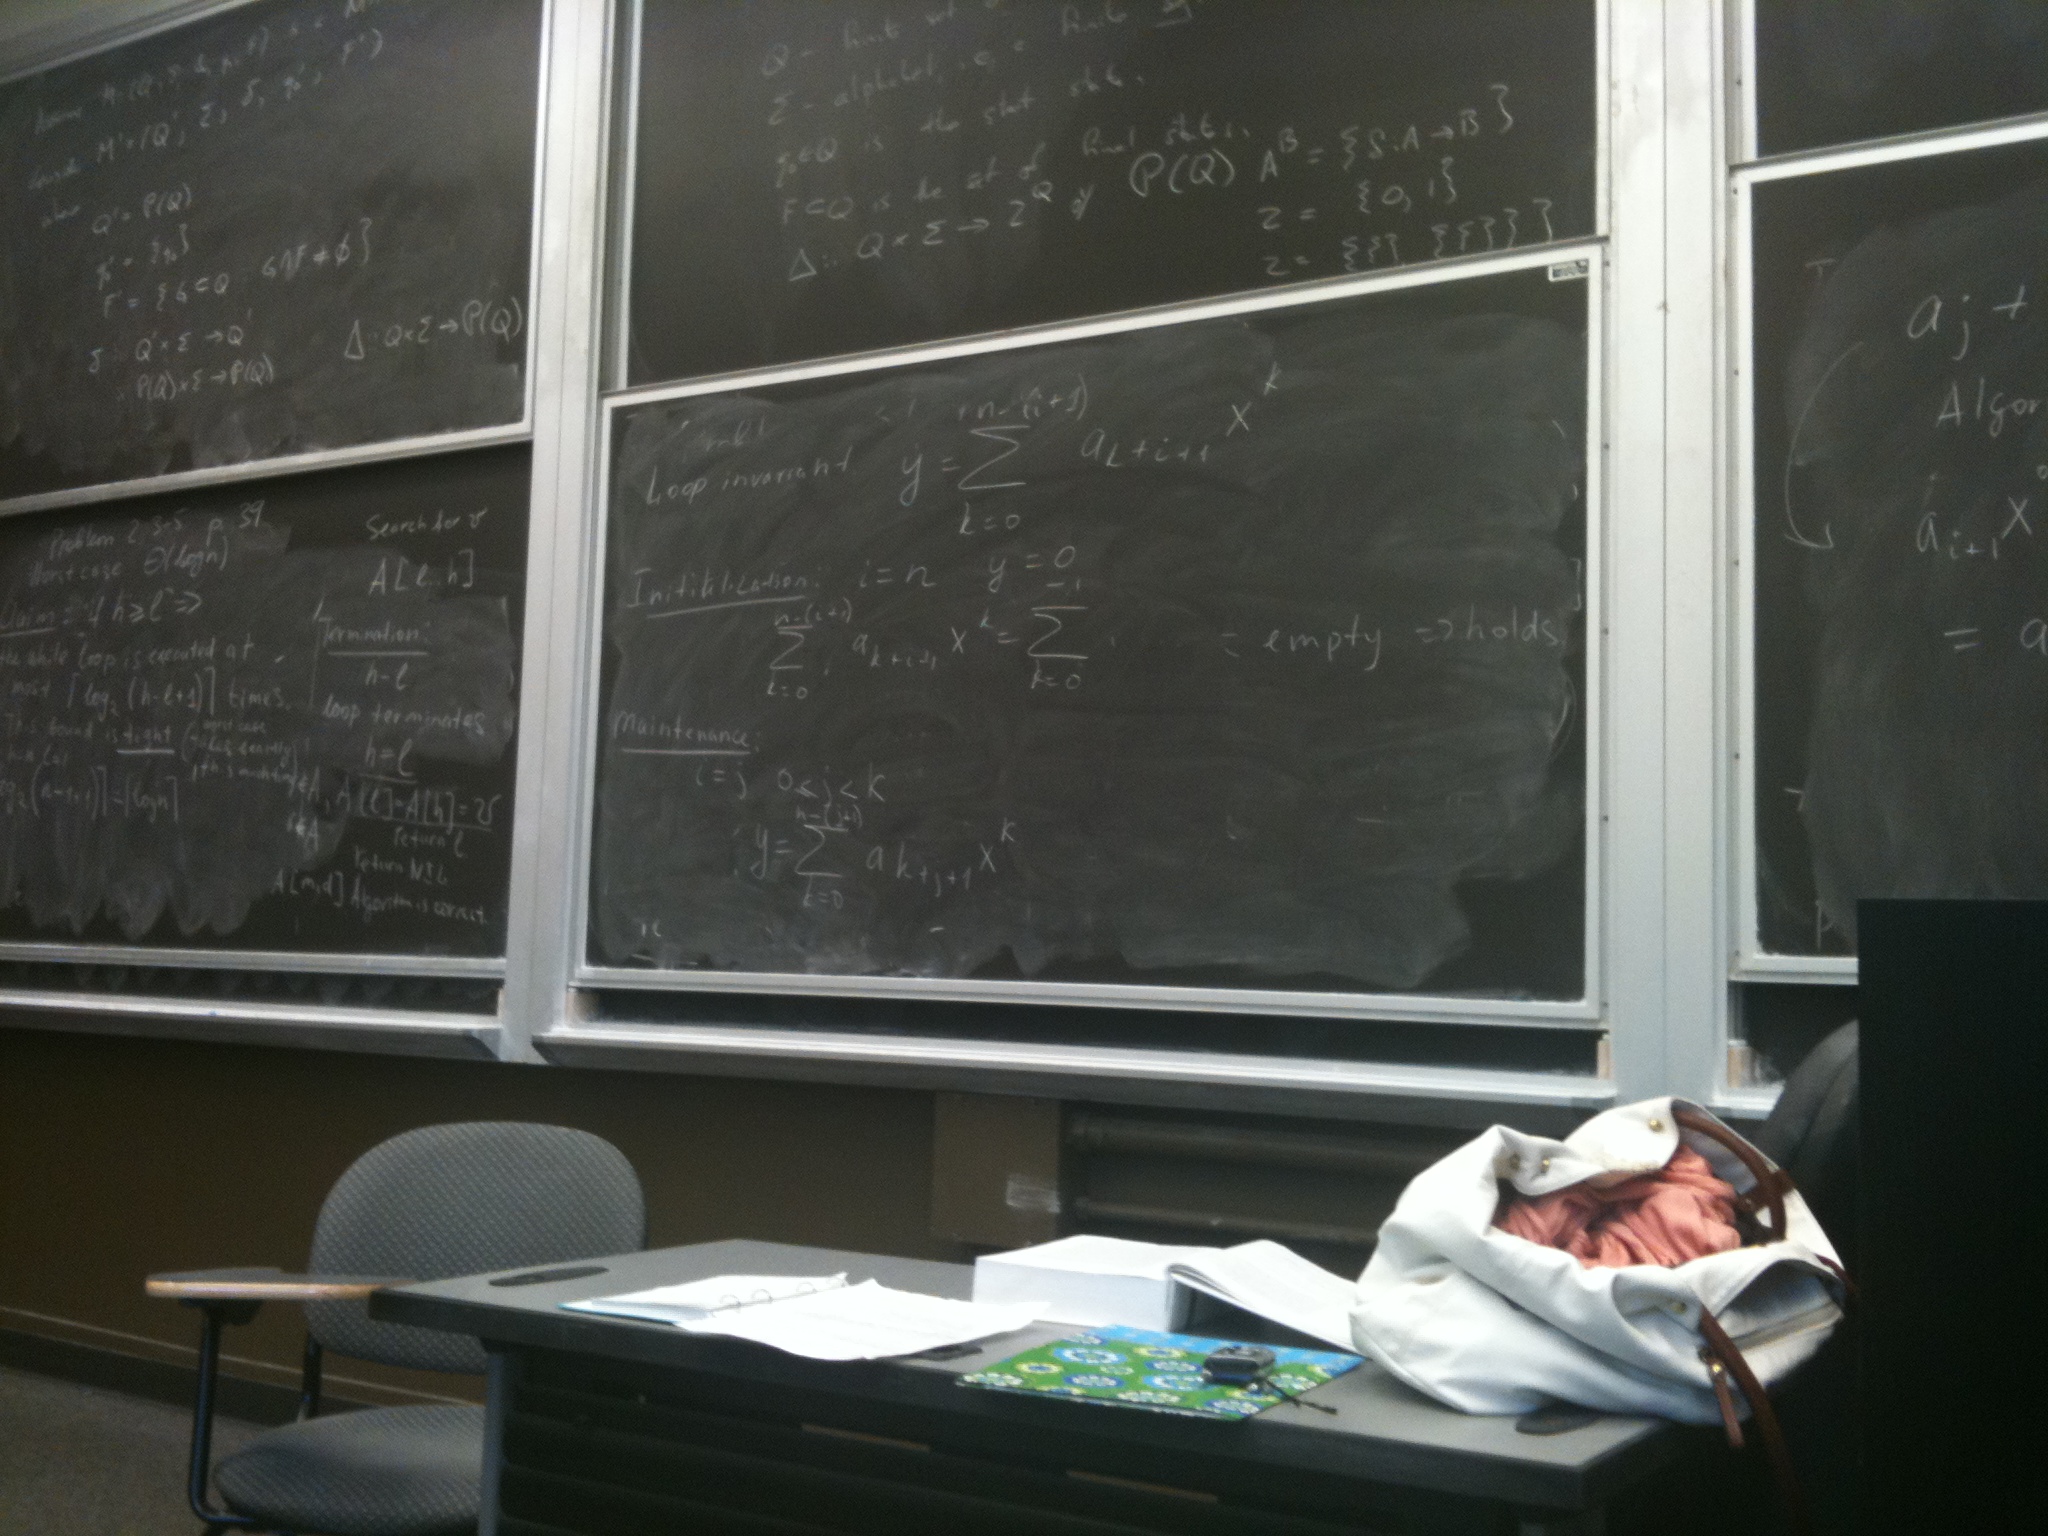 M' = (Q', Σ, δ, q₀', F')
Q' = P(Q)
q₀' = {q₀}
F' = {G ⊂ Q : G ∩ F ≠ ∅}
δ : Q' × Σ → Q'
: P(Q) × Σ → P(Q)
Δ : Q × Σ → P(Q)
Problem 2.3-5 p. 39
Worst case Θ(logn)
Claim: If h ≥ l =>
the while loop is executed at
most ⌈log₂ (h-l+1)⌉ times.
This bound is tight
⌈log₂(n-1+1)⌉ = ⌈logn⌉
Search for v
A[l..h]
Termination:
h-l
loop terminates
h=l
A[l]=A[h]=v
return l
return NIL
A[mid] Algorithm is correct
Q - finite set
Σ - alphabet, i.e. a finite
q₀ ∈ Q is the start state.
F ⊂ Q is the set of final states.
Δ : Q × Σ → 2^Q or P(Q)
A^B = {f: A → B}
2 = {0, 1}
2 = {{}, {{}}}
Loop invariant y = Σ_{k=0}^{n-(i+1)} a_{k+i+1} x^k
Initiilization: i = n y = 0
Σ_{k=0}^{n-(i+1)} a_{k+i+1} x^k = Σ_{k=0}^{-1} = empty => holds
Maintenance:
i = j 0 ≤ j < k
y = Σ_{k=0}^{n-(j+1)} a_{k+j+1} x^k
a_j +
Algor
a_{i+1} x
= a